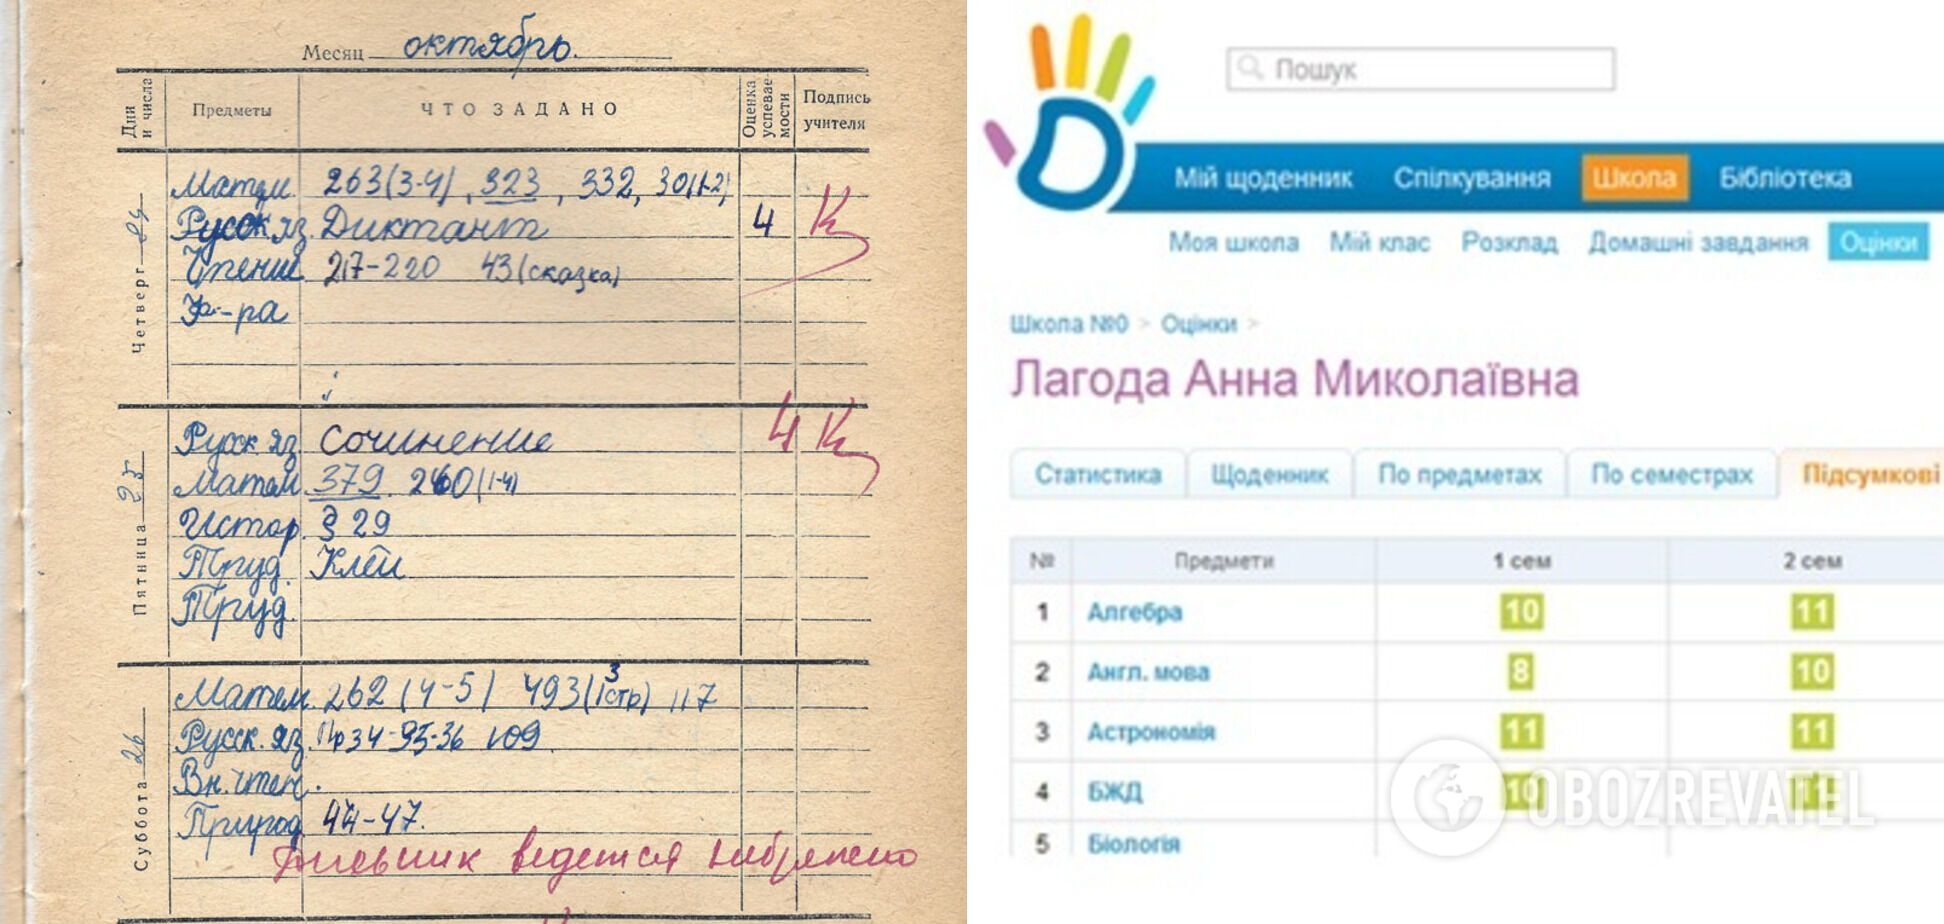 Месяц октябрь.
Дни и числа Предметы ЧТО ЗАДАНО Оценка успевае- мости Подпись учителя
Четверг 24
Матем 263(3-4), 323, 332, 30(1-2)
Русск яз. Диктант 4
Чтение 217-220 43(сказка)
Ф-ра
Пятница 25
Русск яз. Сочинение 4
Матем 379. 260(1-4)
Истор. § 29
Труд. Клей
Труд.
Суббота 26
Матем. 262 (4-5) 493(3 стр) 117
Русск. яз. 109
Вн. чтен.
Природ 44-47.
Дневник ведется небрежно
D
Пошук
Мій щоденник Спілкування Школа Бібліотека
Моя школа Мій клас Розклад Домашні завдання Оцінки
Школа №0 > Оцінки >
Лагода Анна Миколаївна
Статистика Щоденник По предметах По семестрах Підсумкові
№ Предмети 1 сем 2 сем
1 Алгебра 10 11
2 Англ. мова 8 10
3 Астрономія 11 11
4 БЖД 10 11
OBOZREVATEL
5 Біологія